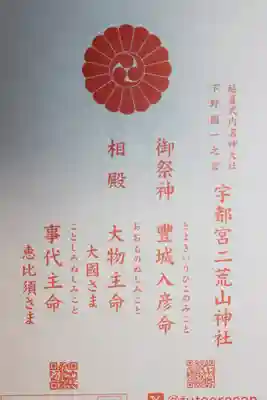 延喜式内名神大社
下野國一之宮
宇都宮二荒山神社
とよきいりひこのみこと
御祭神　豊城入彦命
おおものぬしのみこと
相殿　大物主命
大國さま
ことしろぬしのみこと
事代主命
恵比須さま